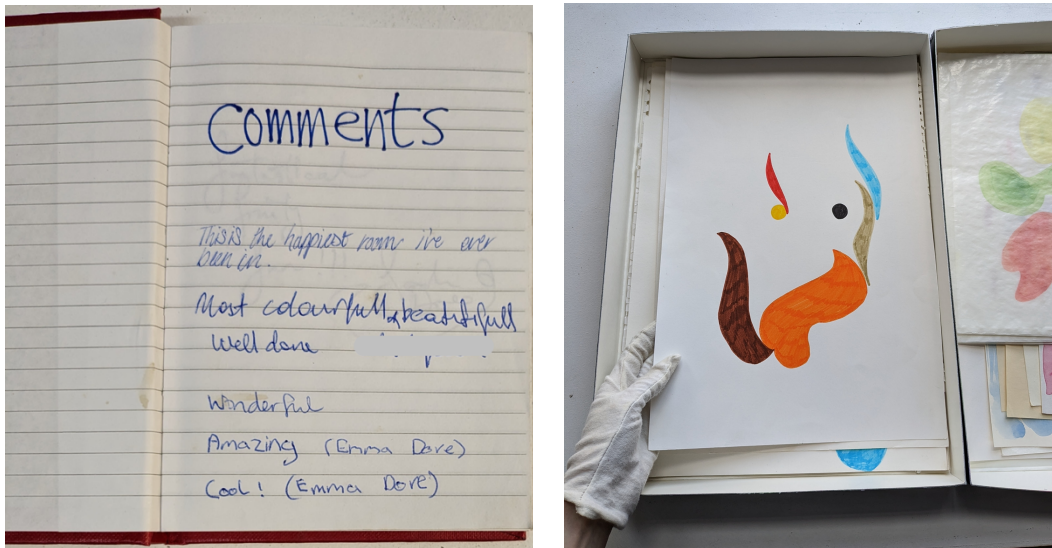 Comments
This is the happiest room i've ever
been in.
Most colourfull & beatifull
Well done
Wonderful
Amazing (Emma Dore)
Cool! (Emma Dore)